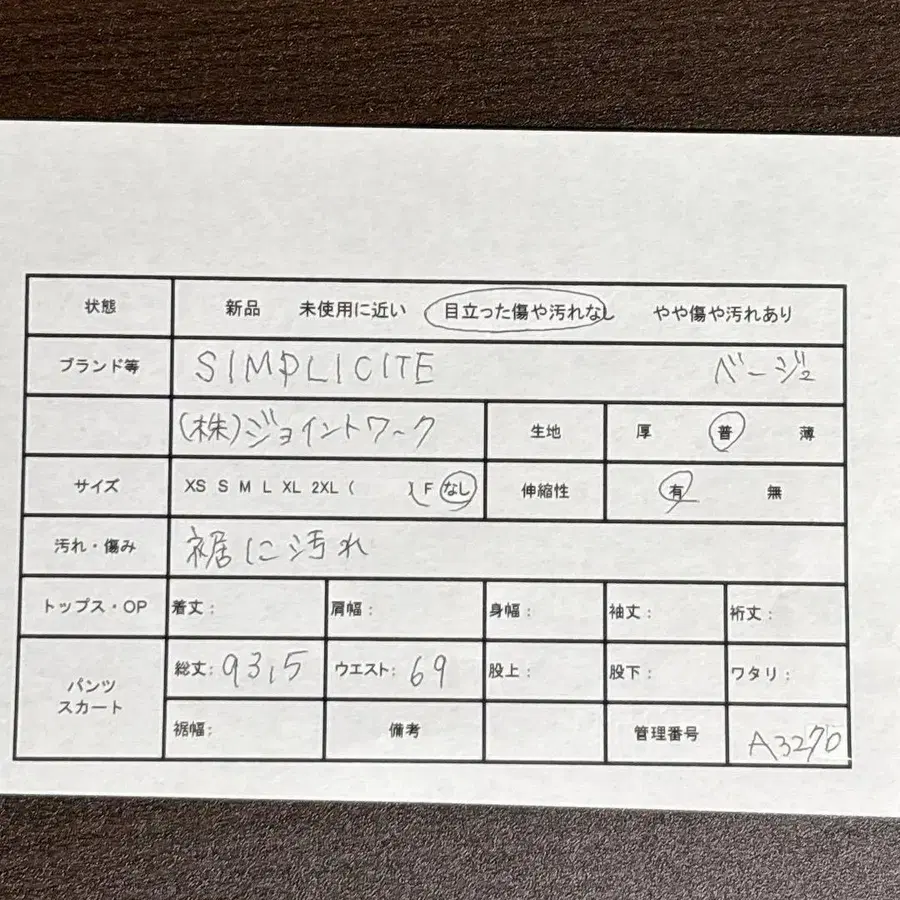 状態 新品 未使用に近い 目立った傷や汚れなし やや傷や汚れあり
ブランド等 SIMPLICITE ベージュ
(株)ジョイントワーク 生地 厚 普 薄
サイズ XS S M L XL 2XL ( ) F なし 伸縮性 有 無
汚れ・傷み 裾に汚れ
トップス・OP 着丈: 肩幅: 身幅: 袖丈: 裄丈:
パンツ スカート 総丈: 93,5 ウエスト: 69 股上: 股下: ワタリ:
裾幅: 備考 管理番号 A3270